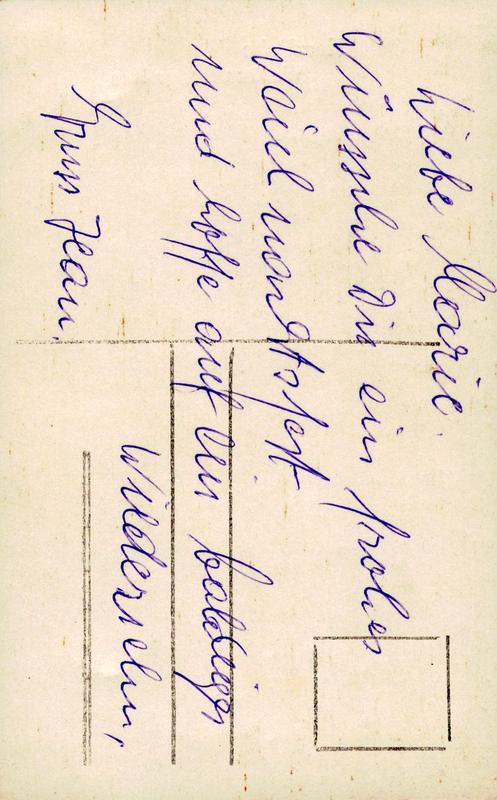 Liebe Marie.
Wünsche Dir ein frohes
Weiehnachtsfest.
und hoffe auf ein baldiges
Wiedersehn,
Gruss Jean.